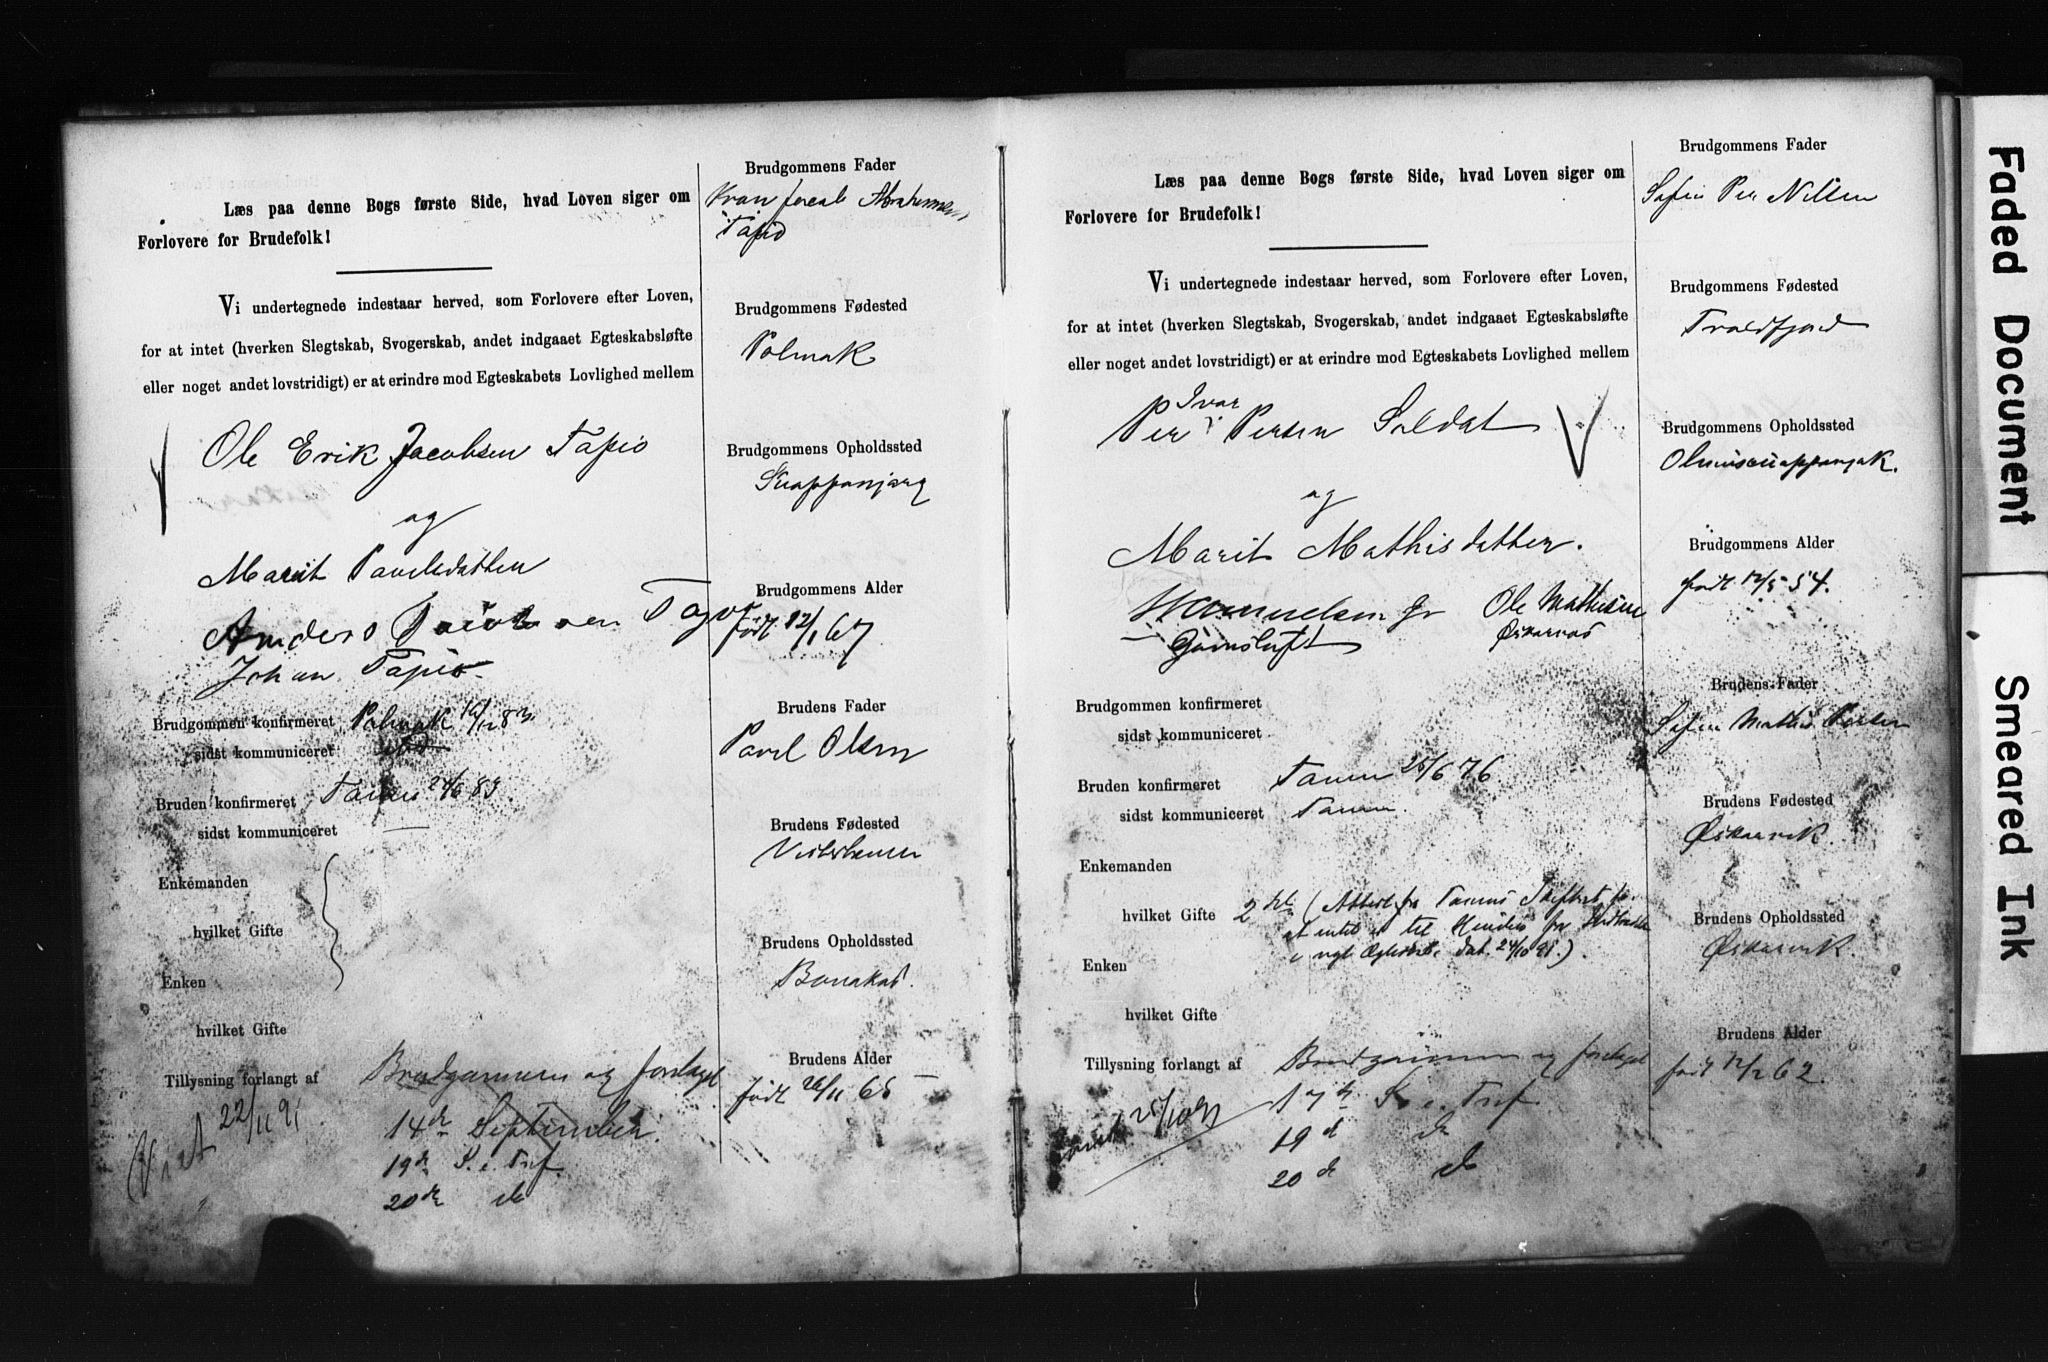 Læs paa denne Bogs første Side, hvad Loven siger om
Forlovere for Brudefolk!
Vi undertegnede indestaar herved, som Forlovere efter Loven,
for at intet (hverken Slegtskab, Svogerskab, andet indgaaet Egteskabsløfte
eller noget andet lovstridigt) er at erindre mod Egteskabets Lovlighed mellem
Ole Erik Jacobsen Tapio
og
Marit Pavelsdatter
Anders
Johan Tapio
Brudgommen konfirmeret Polmak
sidst kommuniceret
Bruden konfirmeret Tanen 24/6 83
sidst kommuniceret —
Enkemanden
hvilket Gifte
Enken
hvilket Gifte
Tillysning forlangt af Brudgommen og forelaget
14de September.
19de S. e. Tref.
20de do
Viet 22/11 91
Brudgommens Fader
Abrahamsen
Tapio
Brudgommens Fødested
Polmak
Brudgommens Opholdssted
Skappanjarg
Brudgommens Alder
født 12/1 67
Brudens Fader
Pavel Olsen
Brudens Fødested
Vesterhavnen
Brudens Opholdssted
Bonakas.
Brudens Alder
født 26/11 65 —
Læs paa denne Bogs første Side, hvad Loven siger om
Forlovere for Brudefolk!
Vi undertegnede indestaar herved, som Forlovere efter Loven,
for at intet (hverken Slegtskab, Svogerskab, andet indgaaet Egteskabsløfte
eller noget andet lovstridigt) er at erindre mod Egteskabets Lovlighed mellem
Ivar
Per Persen Soldat
og
Marit Mathisdatter.
Ole Mathisen
Brudgommen konfirmeret
sidst kommuniceret
Bruden konfirmeret Tanen 25/6 76
sidst kommuniceret Tanen.
Enkemanden
hvilket Gifte 2det (Attest fra Tanens Skifteret for
at intet er til Hinder for
i nyt Egteskab, dat. 24/10 91.)
Enken
hvilket Gifte
Tillysning forlangt af Brudgommen og forelaget
17de S. e. Tref.
19de do
20de do
25/10 91
Brudgommens Fader
Safin Per Nilsen
Brudgommens Fødested
Troldfjord
Brudgommens Opholdssted
Brudgommens Alder
født 12/5 54.
Brudens Fader
Mathis Persen
Brudens Fødested
Øskarvik.
Brudens Opholdssted
Øskarvik.
Brudens Alder
født 12/2 62.
Faded Document
Smeared Ink